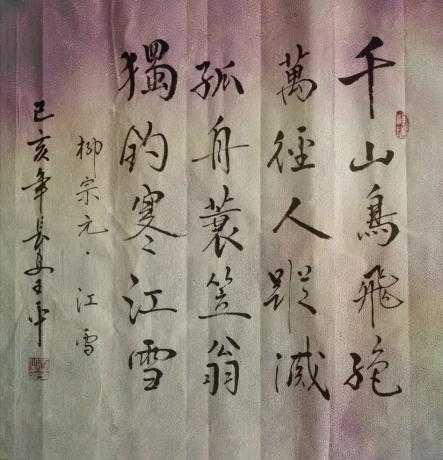 千山鳥飛絶
萬徑人蹤滅
孤舟蓑笠翁
獨釣寒江雪
柳宗元·江雪
己亥年長安王平